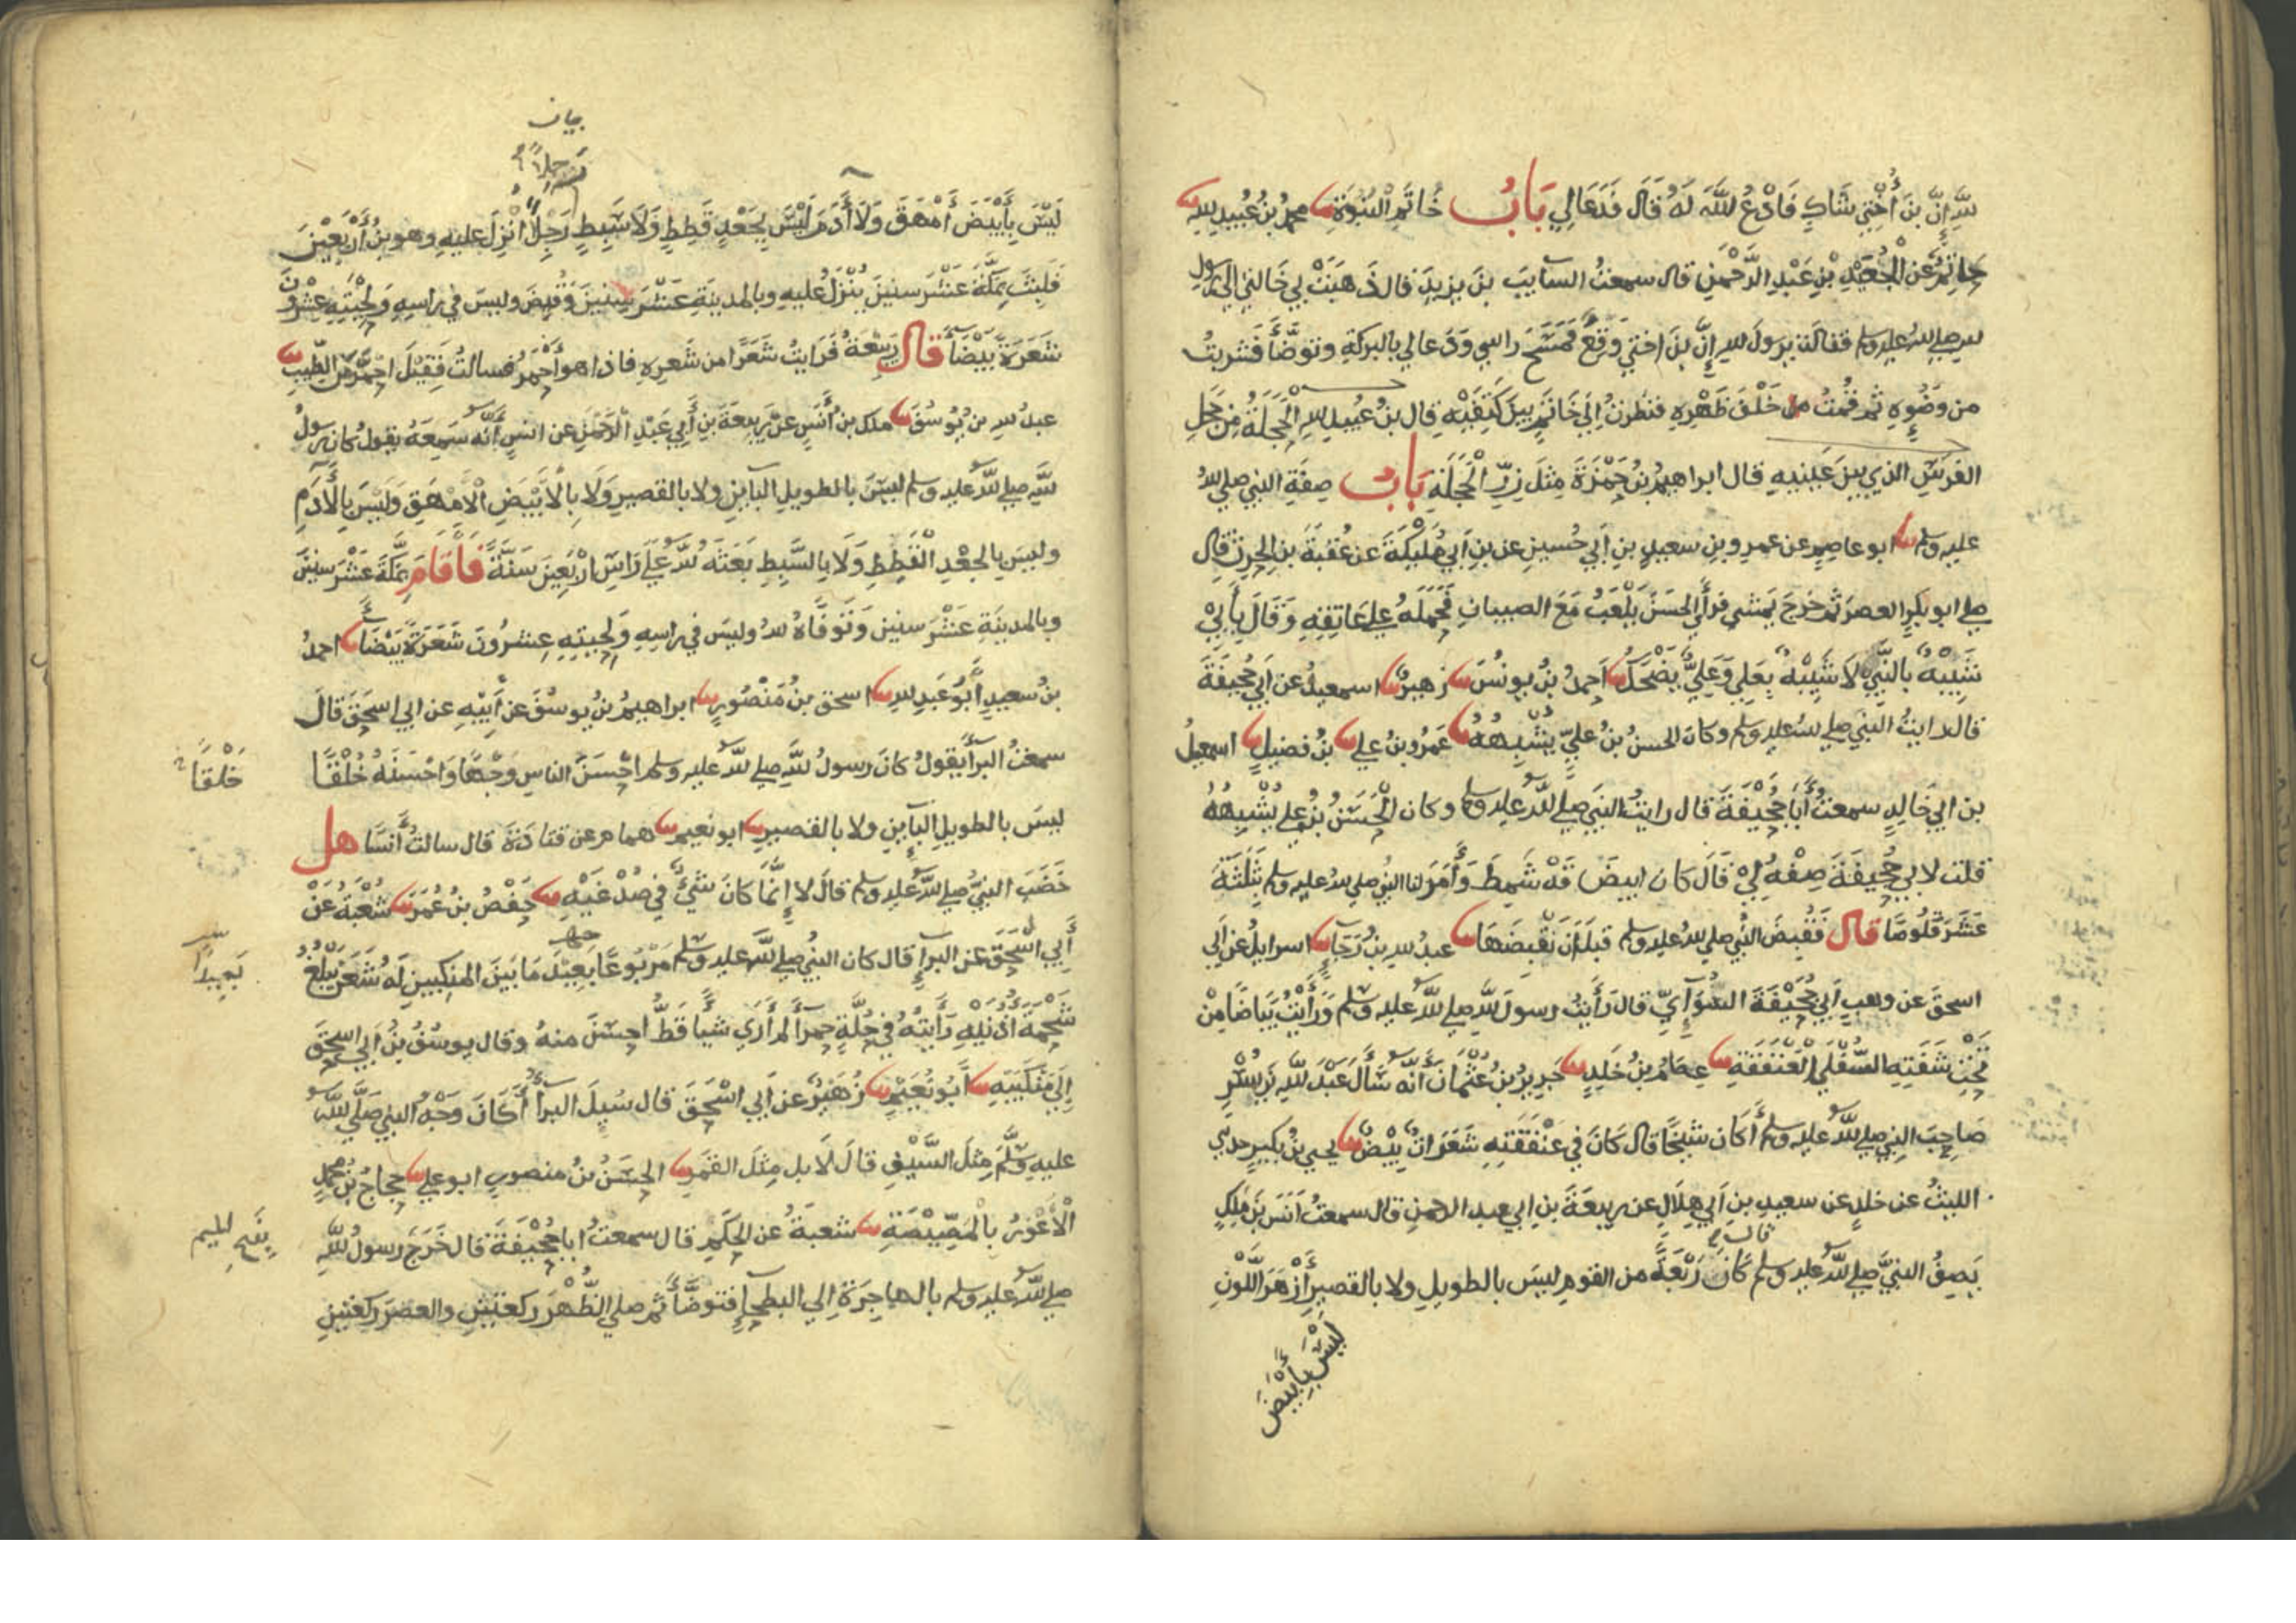 للهِ إِنَّ بنَ أُخْتِي شَاكٍ فَادْعُ اللَّهَ لَهُ قَالَ فَدَعَا لِي بَابُ خَاتَمِ النُّبُوَّةِ محمدُ بنُ عُبَيدِ للهِ
حاتِمٌ عن الْجُعَيْدِ بْنِ عَبْدِ الرَّحْمٰنِ قال سمعتُ السايبَ بنَ يزيدَ قال ذَهَبَتْ بي خالتي الى رسول
لله صلى لله عليه وسلم فقالت يرسولَ لله إِنَّ بنَ اختي وَقِعٌ فَمَسَحَ راسي وَدَعا لي بالبركةِ وتوضَّأَ فَشربتُ
من وَضُوءِهِ ثم قمتُ خَلْفَ ظَهْرِهِ فنظرتُ إِلَى خَاتَمٍ بينَ كَتِفَيْهِ قال بنُ عُبَيدِ للهِ الْحَجَلَةُ مِنْ حَجَلِ
الفَرَسِ الذي بينَ عَينيهِ قال ابراهيمُ بنُ حَمْزَةَ مِثلَ زِرِّ الْحَجَلَةِ بَابُ صِفَةِ النبي صلى للهُ
عليه وسلم ابو عاصِمٍ عن عمرِ وبنِ سعيدِ بنِ أبي حُسينٍ عن بنِ أبي مُلَيكَةَ عن عُقبَةَ بنِ الحرِثِ قال
صلى ابو بكرٍ العصرَ ثم خرجَ يَمشي فرأى الحسَنَ يَلْعَبُ مَعَ الصبيانِ فَحَمَلَهُ على عاتِقِهِ وَقَالَ بِأَبِيْ
شَبِيْهٌ بالنَّبِيِّ لَا شَبِيْهٌ بِعَلِيٍ وَعَلِيٌّ يَضْحَكُ أَحمدُ بنُ يونُسَ زهيرٌ اسمعيلُ عن أبي جُحَيفَةَ
قال رايتُ النبي صلى للهُ عليه وسلم وكانَ الحسنُ بنُ عليٍّ يُشْبِهُهُ عَمْرُو بنُ عليٍ بنُ فضيلٍ اسمعيلُ
بن ابي خَالِدٍ سمعتُ أبا جُحَيْفَةَ قال رايتُ النبيَ صلى للهُ عليه وسلم وكان الْحَسَنُ بنُ علي يُشْبِهُهُ
قلت لابي جُحَيفَةَ صِفْهُ لِيْ قَالَ كان ابيضَ قَدْ شَمِطَ وَأَمَرَ لنا النبيُ صلى للهُ عليه وسلم بثَلٰثَةَ
عَشَرَ قَلُوصًا قال فَقُبِضَ النبيُ صلى للهُ عليه وسلم قبلَ أن نَقْبِضَهَا عبدُ للهِ بنُ رَجَاءٍ اسرايلُ عن أبي
اسحقَ عن وهبٍ أبي جُحَيْفَةَ السُّوَائِيِّ قال رَأَيتُ رسولَ للهِ صلى للهُ عليه وسلم وَرَأَيْتُ بَيَاضًا مِنْ
تَحْتِ شَفَتِهِ السُّفْلَى الْعَنْفَقَةِ عِصَامُ بنُ خٰلِدٍ حَرِيزُ بنُ عُثْمَانَ أَنَّهُ سَأَلَ عَبْدَ للهِ بنَ بُسْرٍ
صَاحِبَ النبيِ صلى للهُ عليه وسلم أَكان شَيْخًا قال كَانَ في عَنْفَقَتِهِ شَعَرَاتٌ بِيْضٌ يحيى بنُ بكيرٍ حدثني
الليثُ عن خٰلدٍ عن سعيدِ بنِ أبي هِلَالٍ عن رَبيعَةَ بنِ ابي عبد الرحمنِ قال سمعتُ أَنَسَ بنَ مٰلِكٍ
قال
يَصِفُ النبيَّ صلى للهُ عليه وسلم كَانَ رَبْعَةً من القومِ ليسَ بالطويلِ ولا بالقصيرِ أَزْهَرَ اللَّوْنِ
لَيْسَ بِأَبْيَضَ
بيان
رَجِلًا
لَيْسَ بِأَبْيَضَ أَمْهَقَ وَلَا أٰدَمَ لَيْسَ بِجَعْدٍ قَطِطٍ وَلَا سَبِطٍ رَجِلٌ أُنْزِلَ عليهِ وهو بنُ أَرْبَعِيْنَ
فَلَبِثَ بِمَكَّةَ عَشْرَ سنينَ يُنْزَلُ عليهِ وبالمدينةِ عَشْرَ سِنينَ وَقُبِضَ وليسَ في راسِهِ وَلِحْيَتِهِ عِشْرُونَ
شَعَرَةً بَيْضَاءَ قَالَ رَبيعَةُ فَرَايتُ شَعَرًا من شَعَرِهِ فاذا هو أَحْمَرُ فسالتُ فَقِيْلَ احْمَرَّ مِنَ الطِّيبِ
عبدُ للهِ بنُ يُوسُفَ ملكُ بنُ أَنَسٍ عن رَبِيعَةَ بنِ أَبي عَبْدِ الرَّحْمٰنِ عن انسٍ أَنَّهُ سَمِعَهُ يقولُ كان رسولُ
للهِ صلى للهُ عليه وسلم ليسَ بالطويلِ الباينِ ولا بالقصيرِ وَلَا بِالْأَبْيَضِ الْأَمْهَقِ وَلَيْسَ بِالْأٰدَمِ
وليسَ بِالجَعْدِ الْقَطِطِ وَلَا بِالسَّبِطِ بَعَثَهُ للهُ عَلَى رَاسِ ارْبَعِينَ سَنَةً فَأَقَامَ بِمَكَّةَ عَشْرَ سنينَ
وبالمدينَةِ عَشْرَ سنينَ وَتَوَفَّاهُ للهُ وليسَ في راسِهِ وَلِحيَتِهِ عِشرُونَ شَعَرَةً بَيْضَاءَ احمدُ
بنُ سعيدٍ أَبُو عَبدِ للهِ اسحق بنُ مَنْصُورٍ ابراهيمُ بنُ يوسُفَ عن أَبِيْهِ عن ابي اسحَقَ قالَ
سمعتُ البراءَ يقولُ كانَ رسولُ للهِ صلى للهُ عليه وسلم احْسَنَ الناسِ وَجْهًا وَاحْسَنَهُ خُلْقًا
خَلْقًا
ليسَ بالطويلِ الباينِ ولا بالقصيرِ ابو نعيمٍ همام عن قتادَةَ قال سالتُ أَنَسًا هل
خَضَبَ النبيُ صلى للهُ عليه وسلم قالَ لا إِنَّمَا كانَ شَيْءٌ في صُدْغَيْهِ حفْصُ بنُ عُمَرَ شُعْبَةُ عَنْ
أَبي اسْحَقَ عن البراءِ قال كان النبيُ صلى للهُ عليه وسلم مَرْبُوعًا بَعِيْدَ مَا بَينَ المنكبينِ لَهُ شَعَرٌ يَبْلُغُ
بَعِيدًا
شَحْمَةَ أُذُنَيْهِ رَأَيتُهُ في حُلَّةٍ حمراءَ لم أَرَى شيأً قَطُّ احسَنَ منهُ وقال يوسُفُ بنُ أبي اسحَقَ
إِلَى مَنْكِبَيْهِ أَبُو نُعَيْمٍ زُهَيْرٌ عن أَبي اسْحَقَ قال سُيِلَ البراءُ أَكَانَ وَجْهُ النبيِ صَلَّى للهُ
عليهِ وسَلَّمَ مِثلَ السَّيْفِ قالَ لَا بل مِثلَ القمَرِ الحسَنُ بنُ منصورٍ ابو علي حجاجُ بنُ محمدٍ
الْأَعْوَرُ بالْمَصِّيْصَةِ شعبةُ عن الحَكَمِ قال سمعتُ ابا جُحَيْفَةَ قال خَرَجَ رسولُ للهِ
بِفتح الميم
صلى للهُ عليه وسلم بالهاجِرَةِ إلى البطحاءِ فتوضَّأَ ثم صلى الظُّهْرَ ركعتينِ والعصرَ ركعتينِ